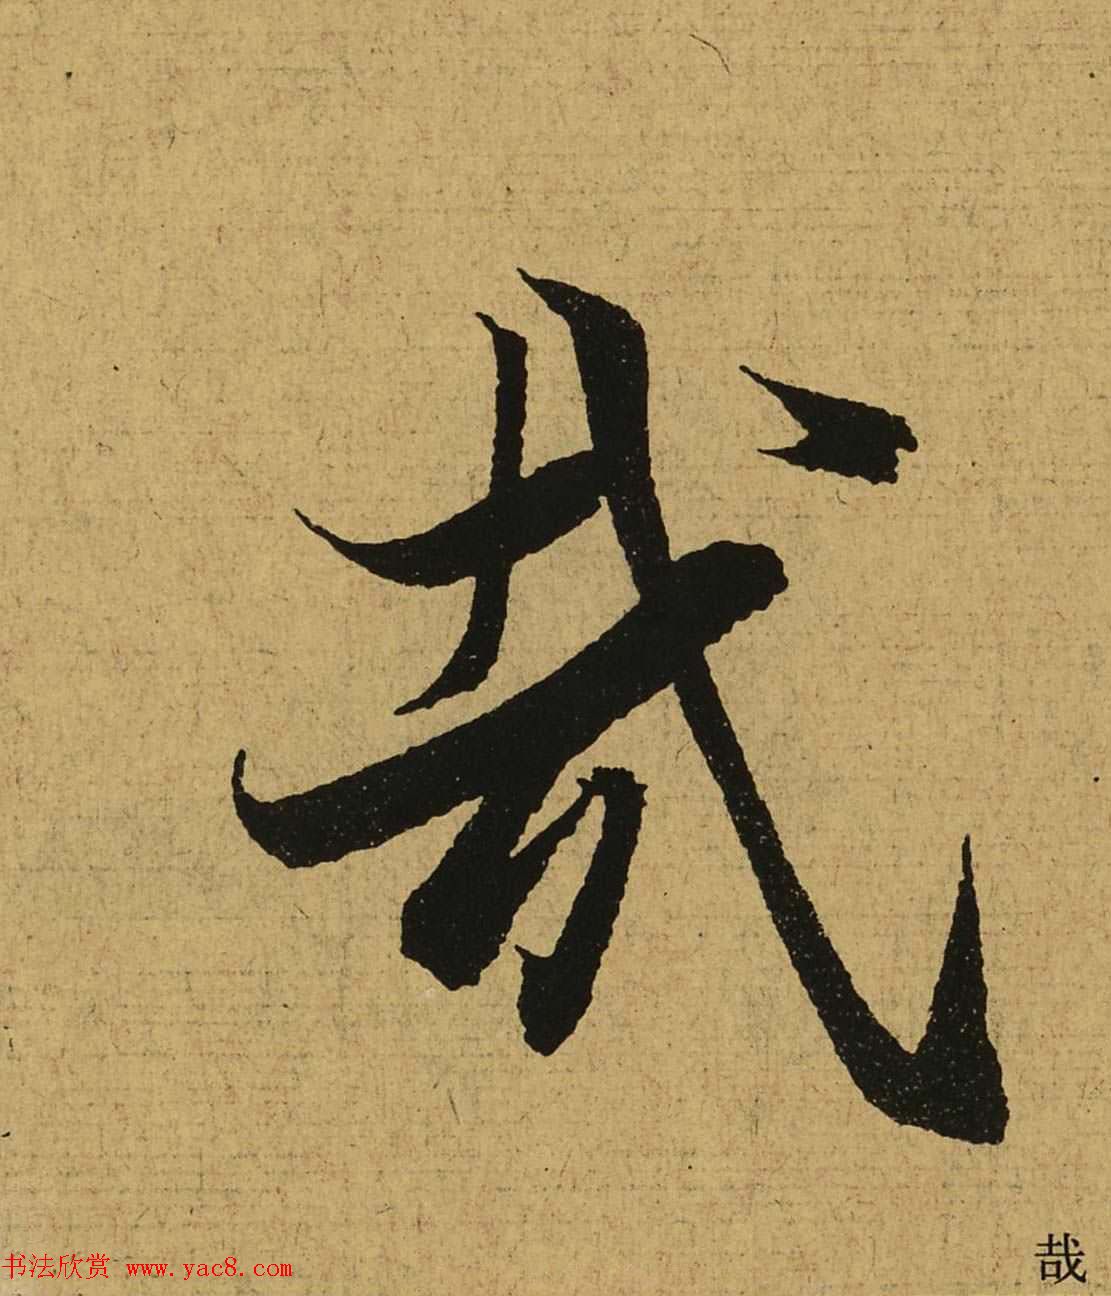 哉
书法欣赏 www.yac8.com
哉